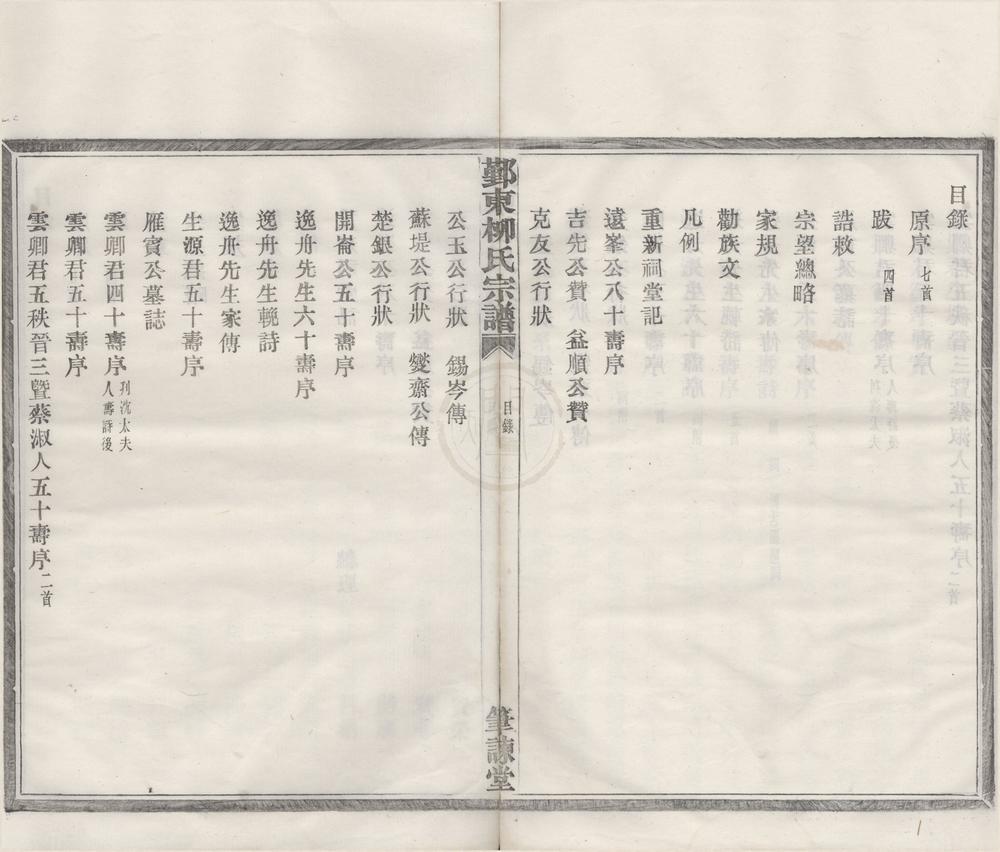 目錄
原序 七首
跋 四首
誥敕
宗望總略
家規
勸族文
凡例
重新祠堂記
遠峯公八十壽序
吉先公贊 益順公贊
克友公行狀
鄞東柳氏宗譜 目錄 筆諫堂
公玉公行狀 錫岑傳
蘇堤公行狀 燮齋公傳
楚銀公行狀
開崙公五十壽序
逸舟先生六十壽序
逸舟先生輓詩
逸舟先生家傳
生源君五十壽序
雁賓公墓誌
雲卿君四十壽序 刋沈太夫人壽詩後
雲卿君五十壽序
雲卿君五秩晉三暨蔡淑人五十壽序 二首